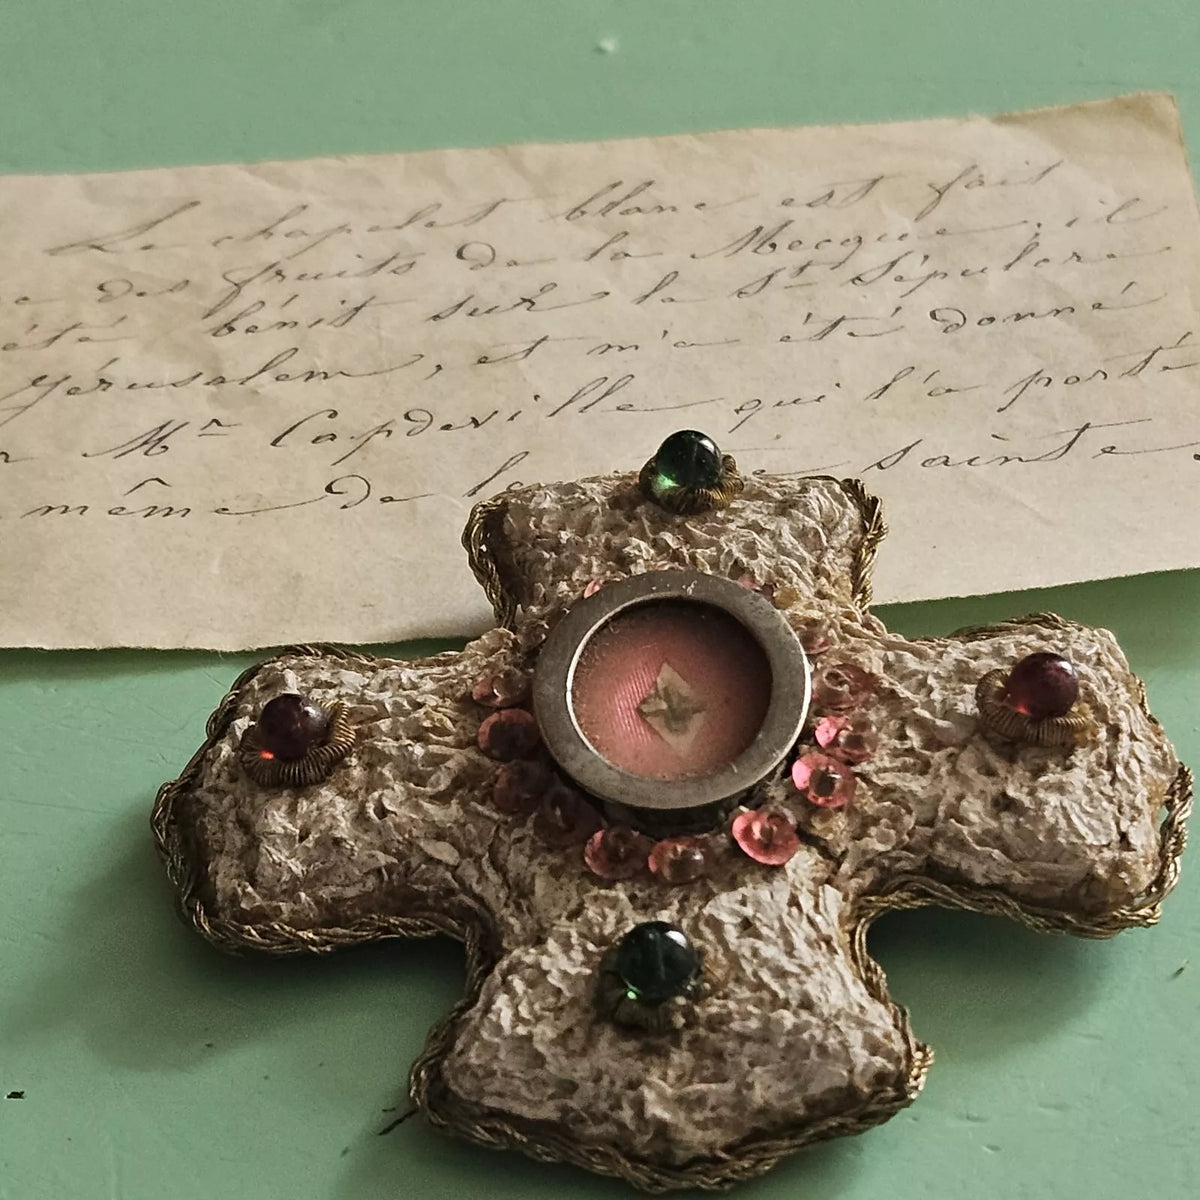 Le chapelet blanc est fait
des fruits de la Mecque, il
été bénit sur le St Sépulcre
Jérusalem, et m'a été donné
Mr Capdeville qui l'a porté
même de sainte